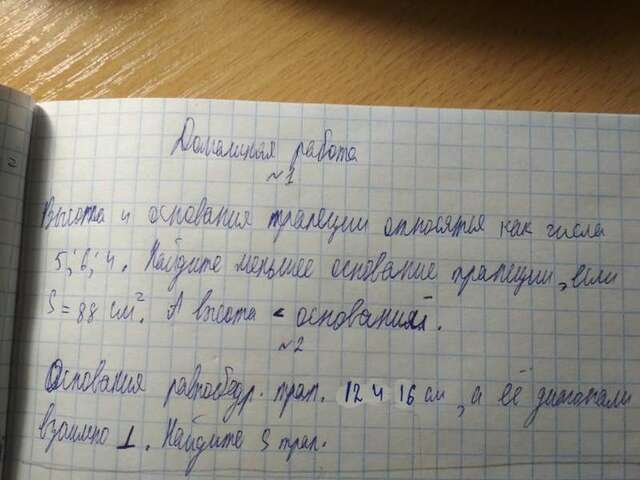 Домашняя работа
~1
Высота и основания трапеции относятся как числа
5; 6; 4. Найдите меньшее основание трапеции, если
S = 88 см². А высота < оснований.
~2
Основания равнобедр. трап. 12 и 16 см, а её диагонали
взаимно ⊥. Найдите S трап.